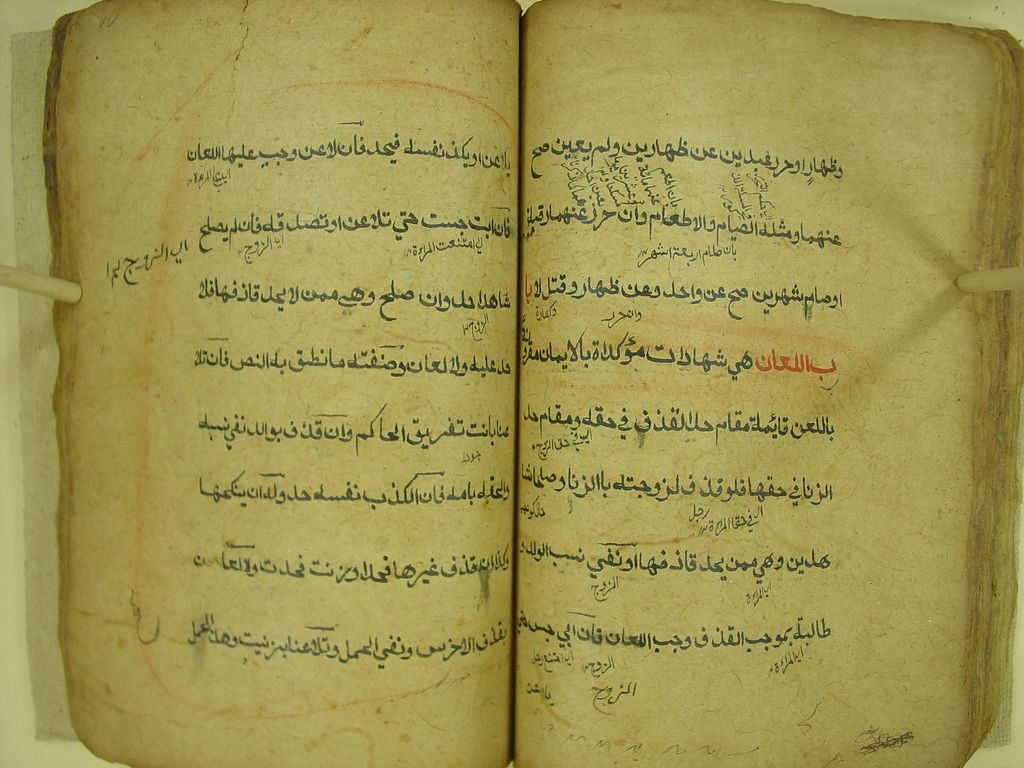 وظهار او حرر عبدين عن ظهارين ولم يعين صح
عنهما ومثله الصيام والاطعام وان حرر عنهما رقبة
بان صام اربعة اشهر
او صام شهرين صح عن واحد وعن ظهار وقتل لا با
وان حرر
وكفارة
ب اللعان هي شهادات مؤكداة بالايمان مقرونة
باللعن قايمة مقام حد القذف في حقه ومقام حد
اي في حق الزوج
الزنا في حقها فلو قذف لزوجته باالزنا وصلحا شا
رجل
اي في حق المراءة
هدين وهي ممن يحد قاذفها او نفي نسب الولد و
الزوج
اي المراءة
طالبته بموجب القذف وجب اللعان فان ابي حبس حتي
اي المراءة
الزوج
اي امتنع رجل
الزوج
يلاعن
يلاعن او يكذب نفسه فيحد فان لاعن وجب عليها اللعان
اي علي المراءة
فان ابت حبست حتي تلاعن او تصدقه فان لم يصلح
اي امتنعت المراءة
اي الزوج
اي الزوج لها
شاهدا حد وان صلح وهي ممن لا يحد قاذفها فلا
الزوج
حد عليه ولا لعان وصفته ما نطق به النص فان تلا
عنا بانت تفريق الحاكم وان قذف بولد نفي نسبه
والحقه بامه فان اكذب نفسه حد وله ان ينكحها
وكذا ان قذف غيرها فحد او زنت فحدت ولا لعان
بقذف الاخرس ونفي الحمل وتلاعنا بزنيت وهذا الحمل